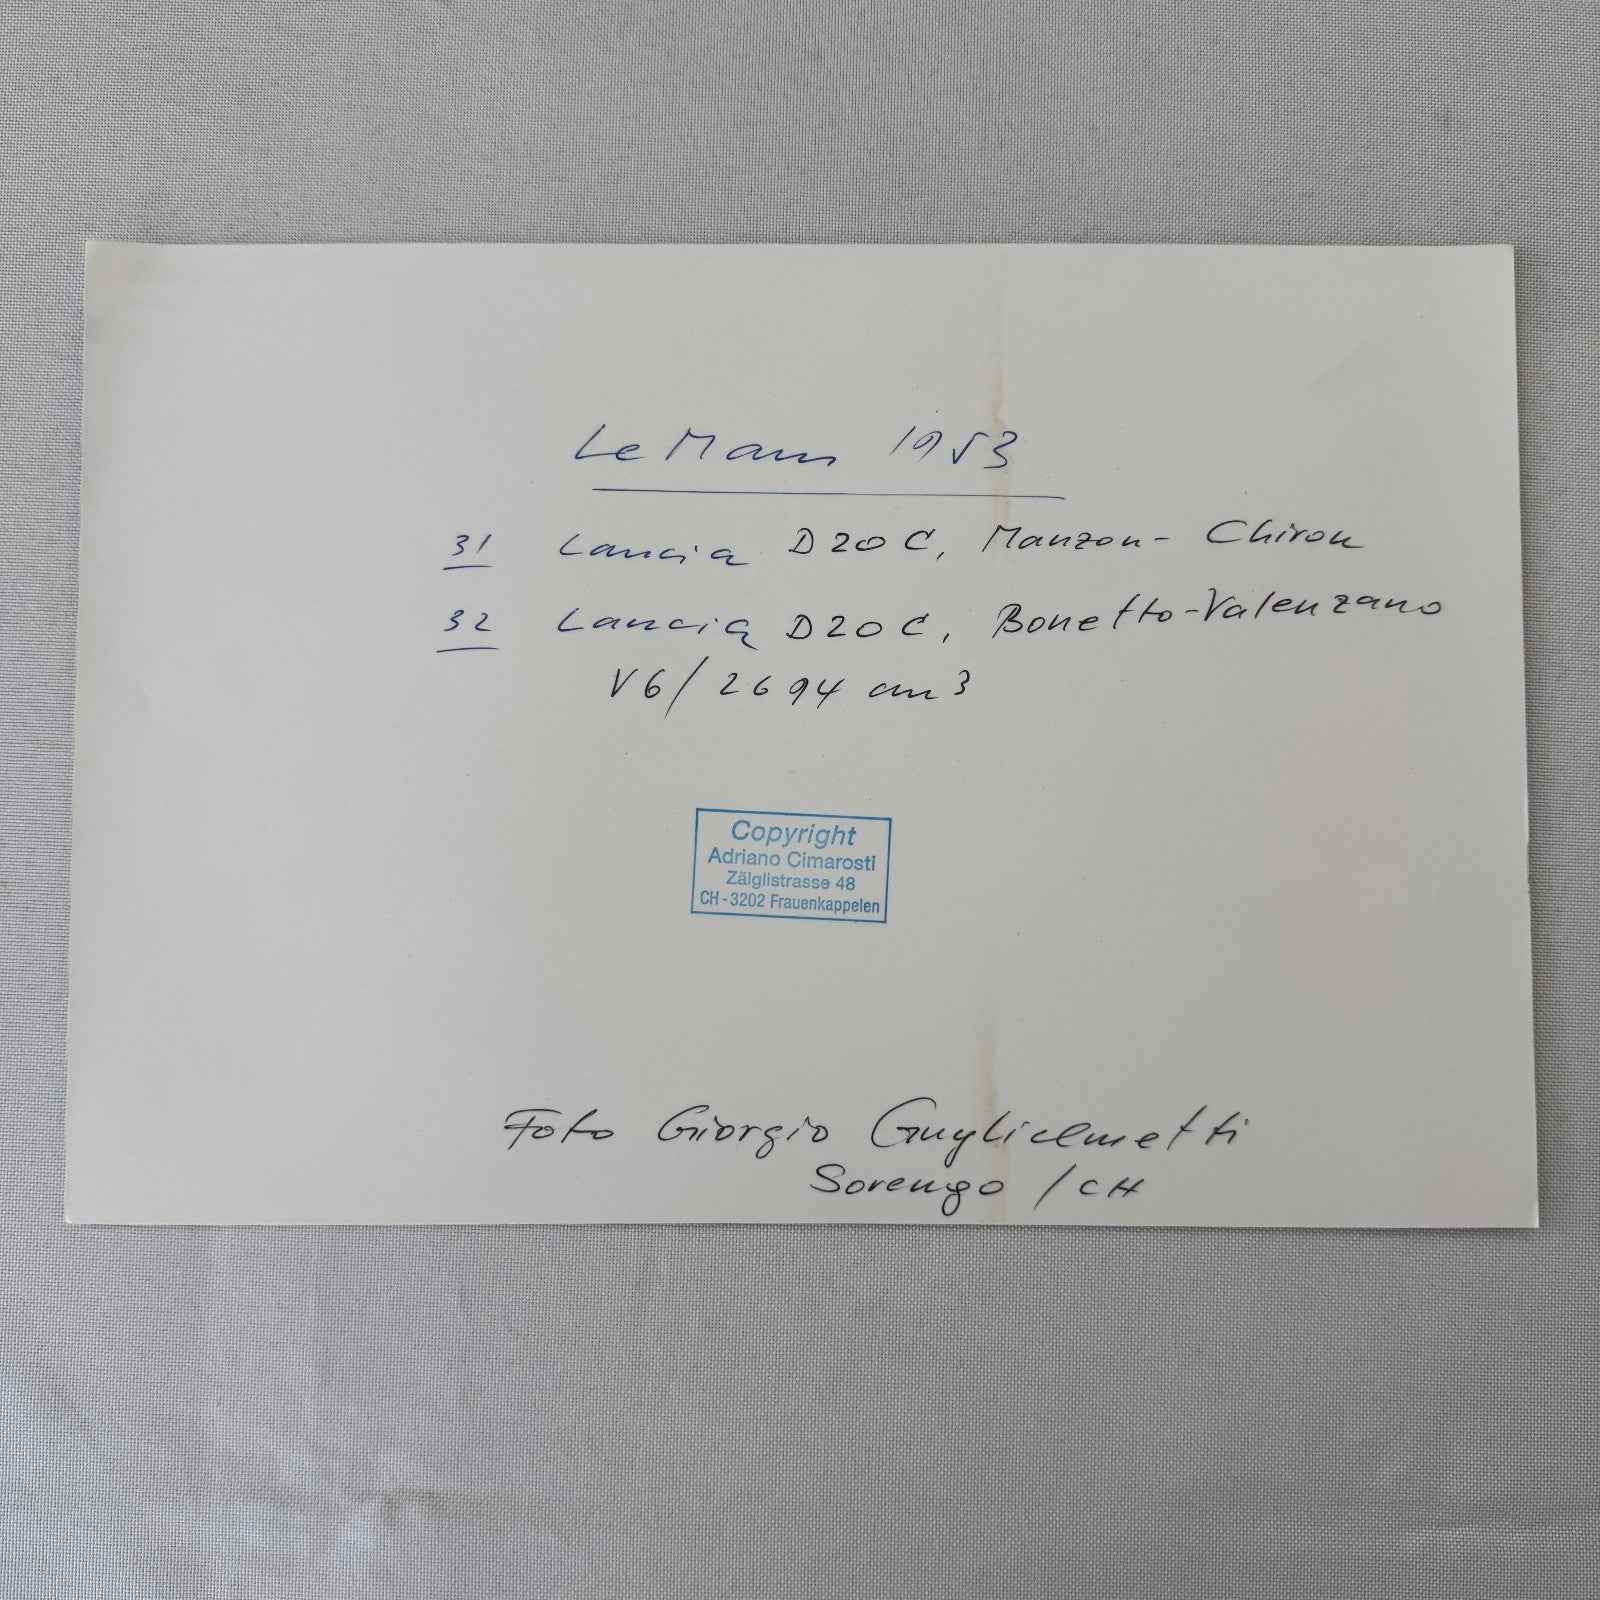 Le Mans 1953
31 Lancia D20C, Manzon - Chiron
32 Lancia D20C, Bonetto - Valenzano
V6/2694 cm3
Copyright
Adriano Cimarosti
Zälglistrasse 48
CH - 3202 Frauenkappelen
Foto Giorgio Guglielmetti
Sorengo / CH